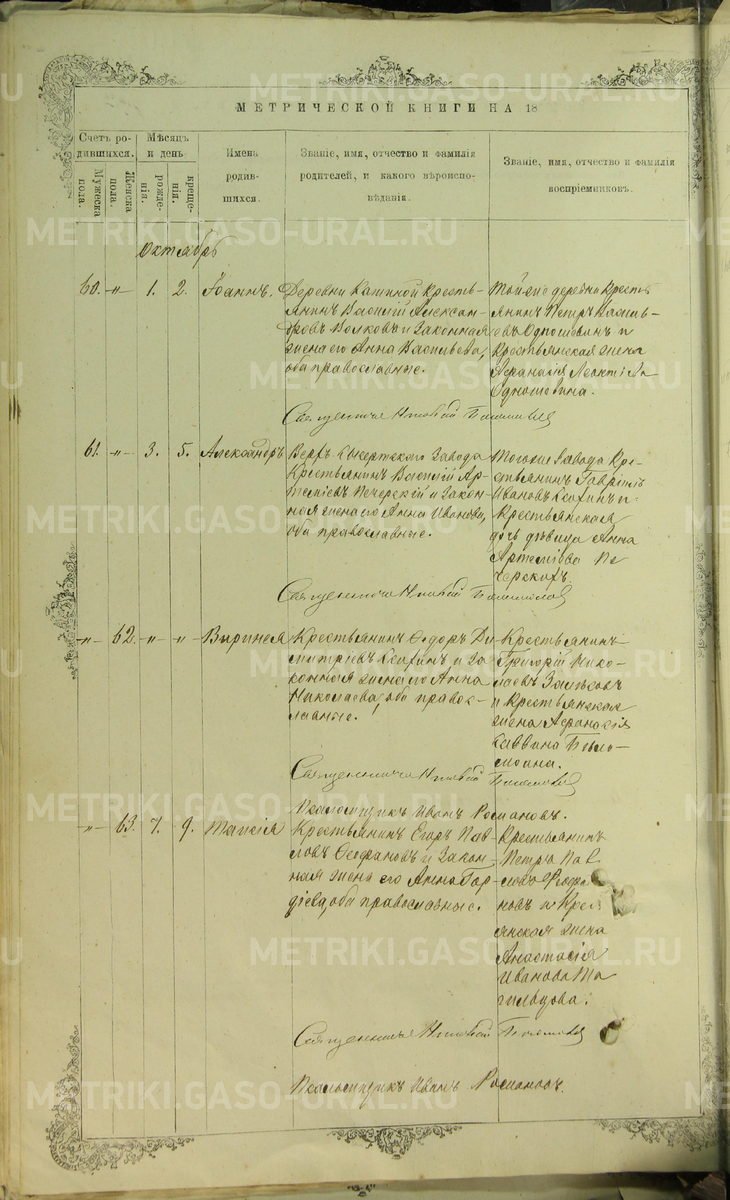 МЕТРИЧЕСКОЙ КНИГИ НА 18
Счетъ ро-
дившихся.
Мужеска
пола.
Женска
пола.
Мѣсяцъ
и день
рожде-
нія.
креще-
нія.
Имена
родив-
шихся.
Званіе, имя, отчество и фамилія
родителей, и какого вѣроиспо-
вѣданія.
Званіе, имя, отчество и фамилія
воспріемниковъ.
Октябрь
60. -"- 1. 2. Іоаннъ.
Деревни Кашиной Кресть-
янинъ Василій Алексан-
дровъ Волковъ и законная
жена его Анна Васильева,
оба православные.
Той же деревни Кресть
янинъ Петръ Василь-
евъ и
Крестьянская жена
Леонтіева
Священникъ
61. -"- 3. 5. Александръ
Верхъ Сысертскаго Завода
Крестьянинъ Василій Ар-
теміевъ Печерскій и закон-
ная жена его Анна Иванова,
оба православные.
Того же Завода Кре-
стьянинъ Гавріилъ
Ивановъ и
Крестьянская
дочь дѣвица Анна
Артеміева Пе
черскихъ.
Священникъ
-"- 62. -"- " Виринея
Крестьянинъ Ѳедоръ Ди
митріевъ и за
конная жена его Анна
Николаева, оба правос-
лавные.
Крестьянинъ
Григорій Нико-
лаевъ
и Крестьянская
жена
Саввина
Священникъ
Псаломщикъ Иванъ Романовъ.
-"- 63. 7. 9. Таисія
Крестьянинъ Егоръ Пав
ловъ и закон-
ная жена его Анна Гор
діева, оба православные.
Крестьянинъ
Петръ Пав
ловъ
новъ и Крес
янская жена
Анастасія
Иванова Та
гильцова.
Священникъ
Псаломщикъ Иванъ Романовъ.
METRIKI.GASO-URAL.RU